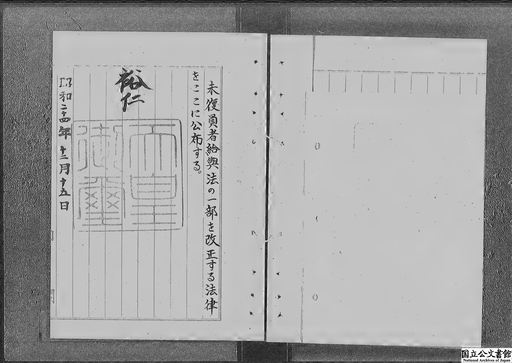 未復員者給與法の一部を改正する法律
をここに公布する。
裕仁
天皇
御璽
昭和二十四年十二月十五日
国立公文書館
National Archives of Japan